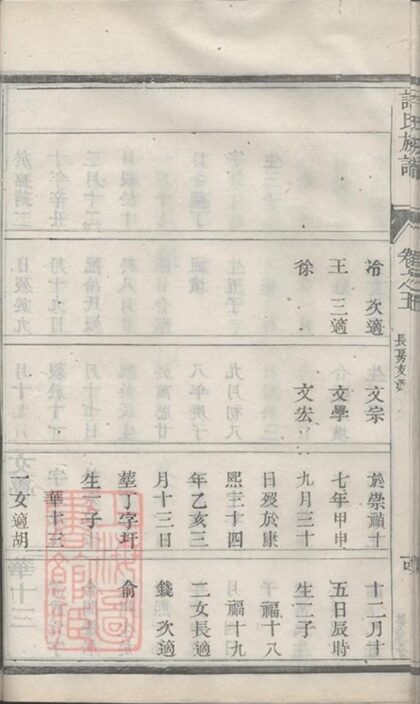 氏族譜
卷之五
長房支派
冷 次適
王 三適
徐
文宗
文學
文宏
於崇禎十
七年甲申
九月三十
日歿於康
熙三十四
年乙亥三
月十三日
塟丁字圩
生一子
華十三
一女適胡
十二月十
五日辰時
生二子
福十八
福十九
二女長適
錢 次適
俞
上海圖
書館藏